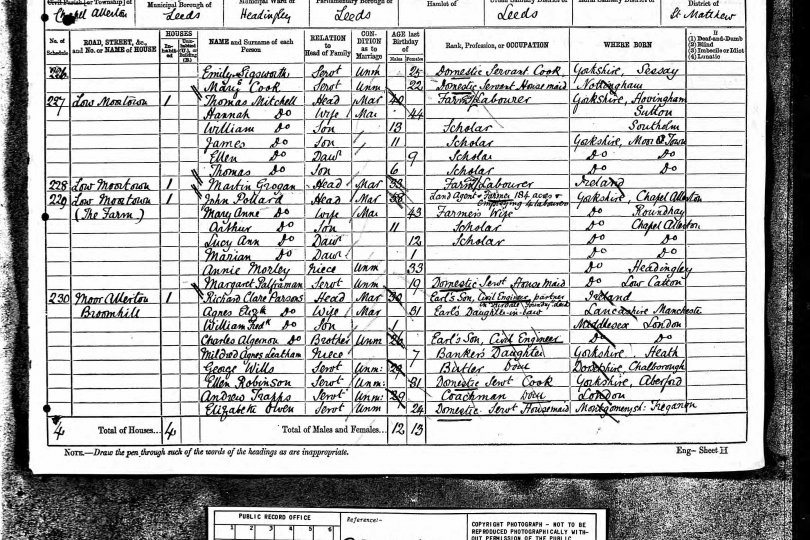 Civil Parish [or Township] of
Chapel Allerton
Municipal Borough of
Leeds
Municipal Ward of
Headingley
Parliamentary Borough of
Leeds
Hamlet of
Urban Sanitary District of
Leeds
Rural Sanitary District of
District of
St Matthew
No. of Schedule
ROAD, STREET, &c., and No. or NAME of HOUSE
HOUSES
Inhabited
Uninhabited (U.), or Building (B.)
NAME and Surname of each Person
RELATION to Head of Family
CONDITION as to Marriage
AGE last Birthday of
Males
Females
Rank, Profession, or OCCUPATION
WHERE BORN
If
(1) Deaf-and-Dumb
(2) Blind
(3) Imbecile or Idiot
(4) Lunatic
226 Emily Sigsworth Servt Unm 25 Domestic Servant Cook Yorkshire, Sessay
Mary Cook Servt Unm 22 Domestic Servant Housemaid Nottingham
227 Low Moortown 1 Thomas Mitchell Head Mar 40 Farm Labourer Yorkshire, Hovingham
Hannah Do Wife Mar 44 Sutton
William Do Son 13 Scholar
James Do Son 11 Scholar Yorkshire, Moor Town
Ellen Do Daur 9 Scholar Do Do
Thomas Do Son 6 Scholar Do Do
228 Low Moortown 1 Martin Grogan Head Mar 33 Farm Labourer Ireland
229 Low Moortown 1 John Pollard Head Mar 38 Land Agent & Farmer 184 acres employing 4 labourers Yorkshire, Chapel Allerton
(The Farm) Mary Anne Do Wife Mar 43 Farmer's Wife Do Roundhay
Arthur Do Son 11 Scholar Do Chapel Allerton
Lucy Ann Do Daur 12 Scholar Do Do
Marian Do Daur 1 Do Do
Annie Morley Niece Unm 33 Do Headingley
Margaret Palframan Servt Unm 19 Domestic Servt House Maid Do Low Catton
230 Moor Allerton 1 Richard Clere Parsons Head Mar Earl's Son, Civil Engineer, partner in Foundry, Leeds Ireland
Broomhill Agnes Elizth Do Wife Mar 31 Earl's Daughter-in-law Lancashire Manchester
William Fredk Do Son 1 Middlesex London
Charles Algernon Do Brother Unm 26 Earl's Son, Civil Engineer Do Do
Mildred Agnes Leatham Niece 7 Banker's Daughter Yorkshire Heath
George Wills Servt Unm: 29 Butler Dom Dorsetshire, Chalborough
Ellen Robinson Servt Unm: 31 Domestic Servt Cook Yorkshire, Aberford
Andrew Trapps Servt Unm: 29 Coachman Dom London
Elizabeth Owen Servt Unm 24 Domestic Servt Housemaid Montgomerysh: Treganon
4 Total of Houses... 4 Total of Males and Females... 12 13
NOTE.—Draw the pen through such of the words of the headings as are inappropriate.
Eng—Sheet H
PUBLIC RECORD OFFICE
1 2 3 4 5 6
Reference:-
COPYRIGHT PHOTOGRAPH - NOT TO BE
REPRODUCED PHOTOGRAPHICALLY WITH-
OUT PERMISSION OF THE PUBLIC